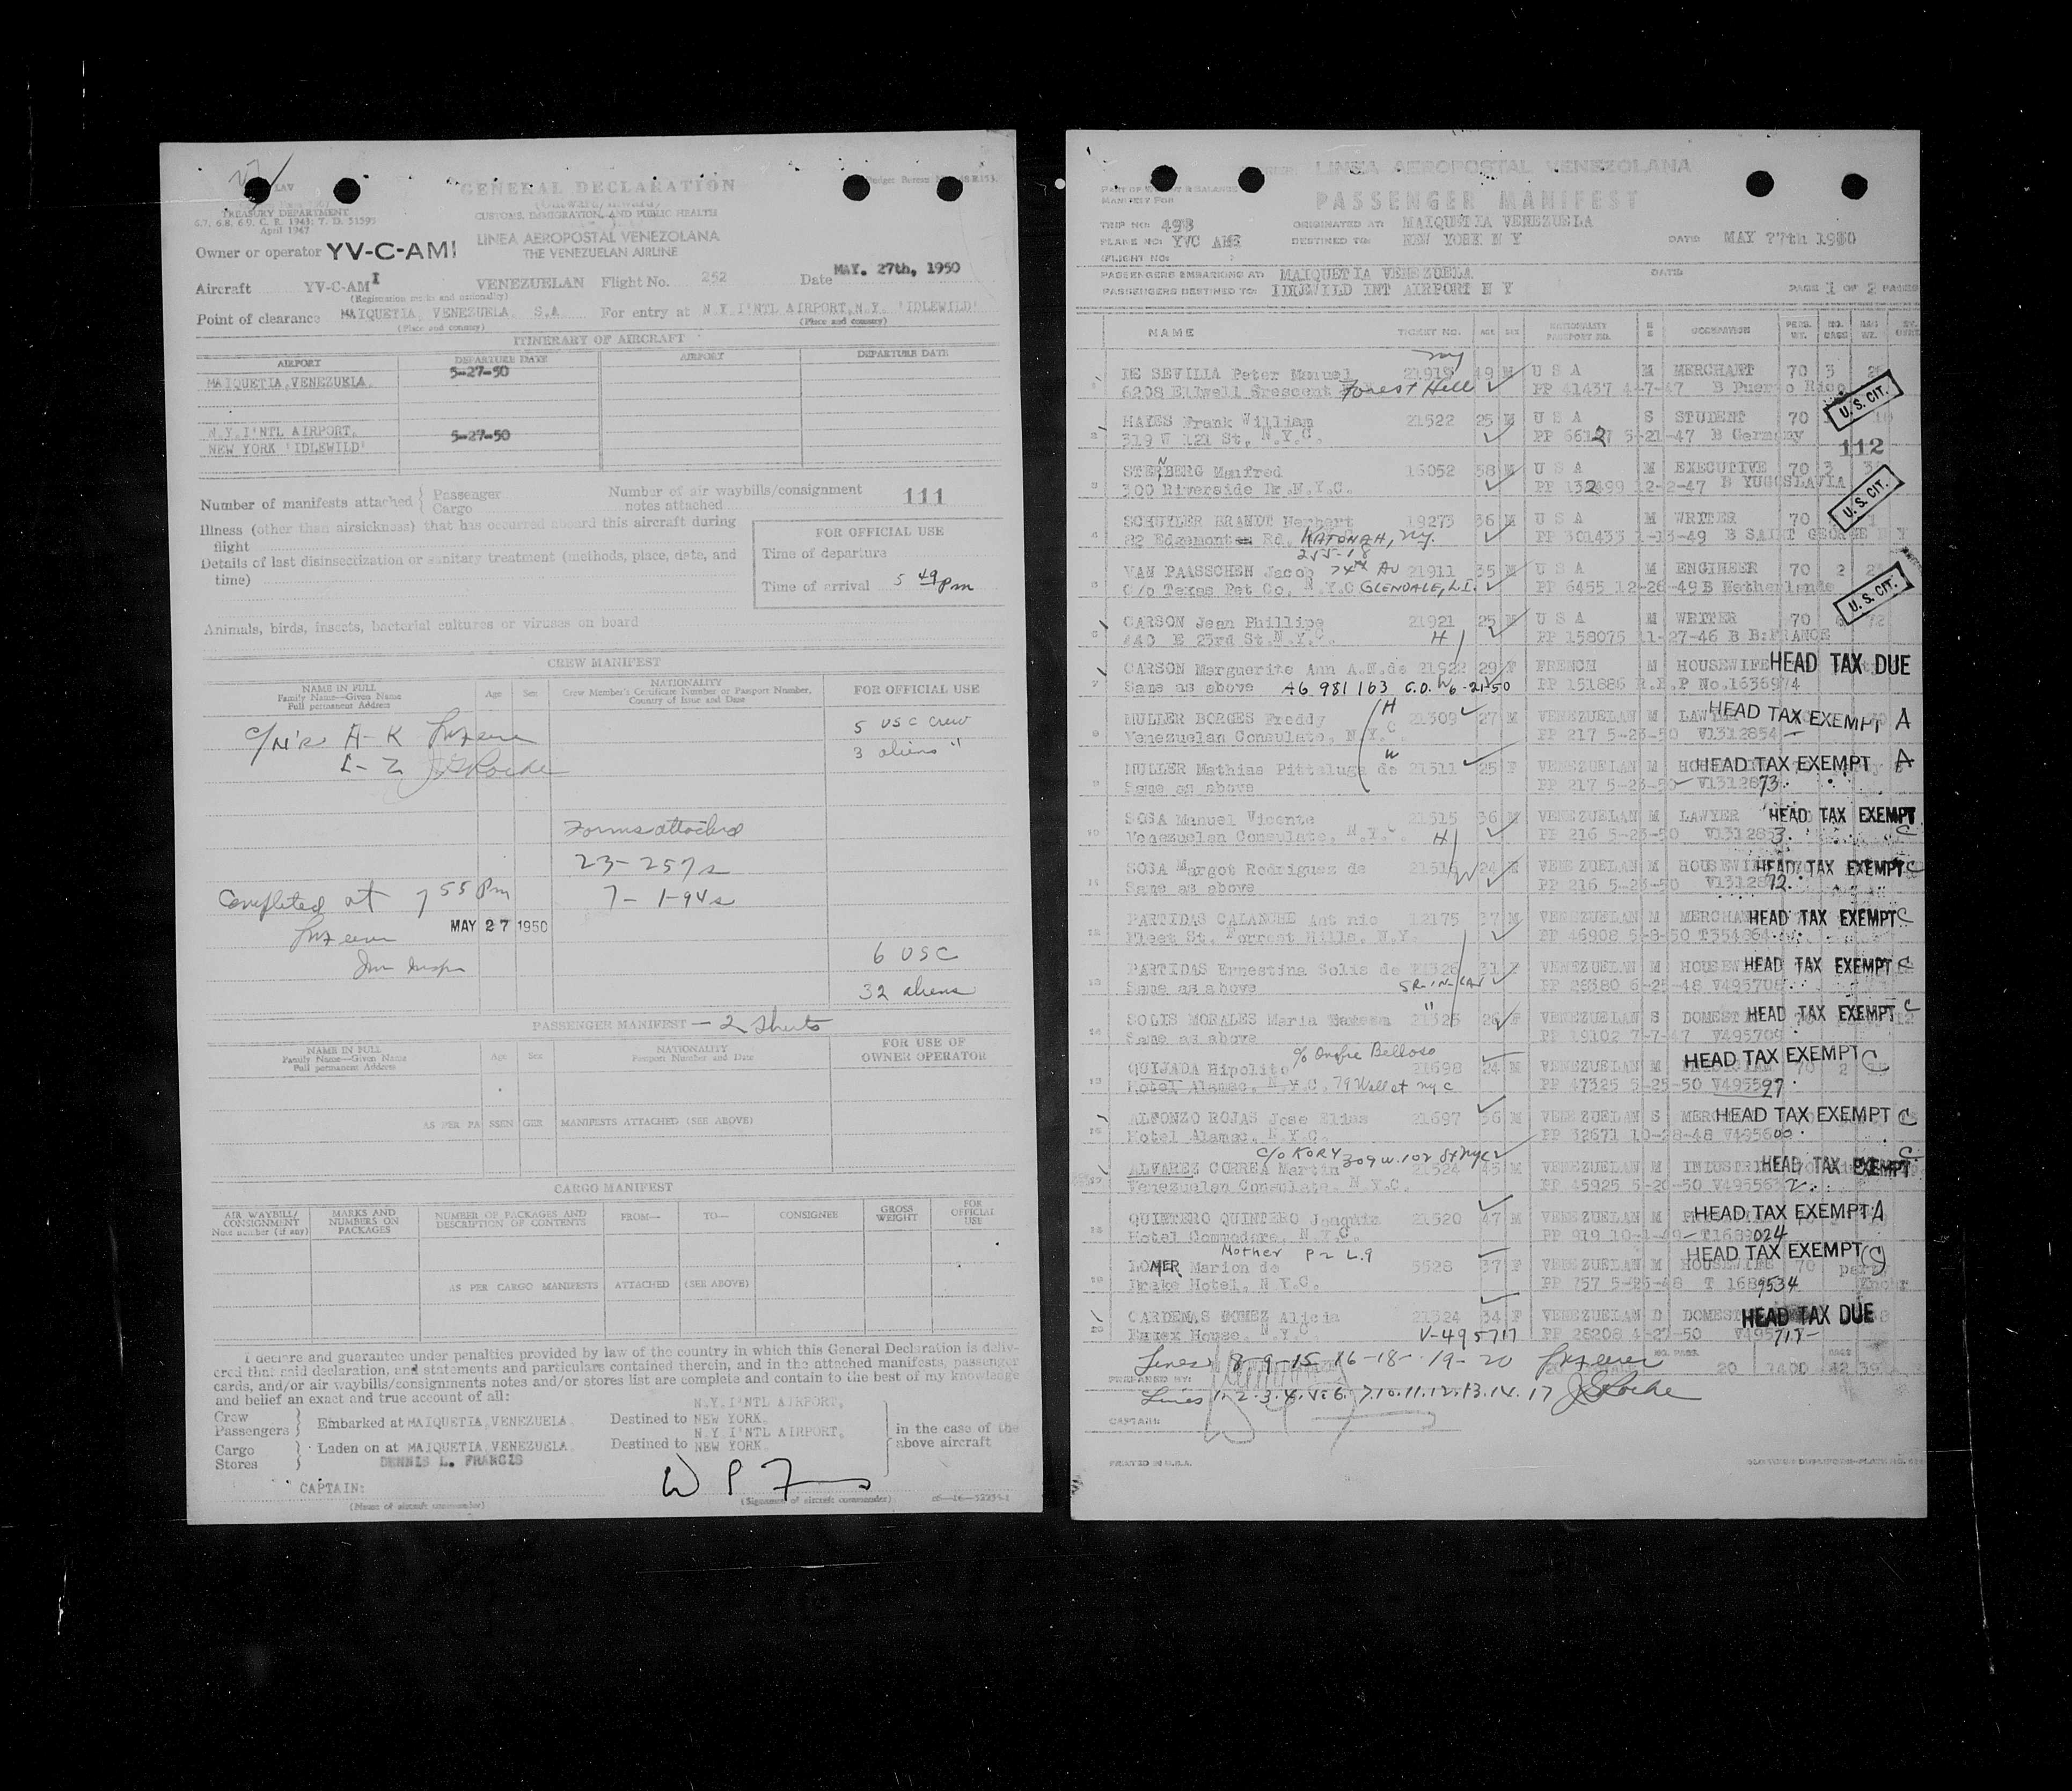 LAV
TREASURY DEPARTMENT
6.7, 6.8, 6.9, C. R. 1943; T. D. 51595
April 1947
GENERAL DECLARATION
(Outward/Inward)
CUSTOMS, IMMIGRATION, AND PUBLIC HEALTH
LINEA AEROPOSTAL VENEZOLANA
THE VENEZUELAN AIRLINE
Owner or operator YV-C-AMI
Aircraft YV-C-AMI VENEZUELAN Flight No. 252 Date MAY. 27th, 1950
(Registration marks and nationality)
Point of clearance MAIQUETIA, VENEZUELA, S.A. For entry at N.Y.I'NTL AIRPORT,N.Y. 'IDLEWILD'
(Place and country) (Place and country)
ITINERARY OF AIRCRAFT
AIRPORT DEPARTURE DATE AIRPORT DEPARTURE DATE
MAIQUETIA,VENEZUELA. 5-27-50
N.Y.I'NTL AIRPORT, 5-27-50
NEW YORK 'IDLEWILD'
Number of manifests attached { Passenger Number of air waybills/consignment 111
Cargo notes attached
Illness (other than airsickness) that has occurred aboard this aircraft during
flight
FOR OFFICIAL USE
Details of last disinsectization or sanitary treatment (methods, place, date, and
time)
Time of departure
Time of arrival 5 49 pm
Animals, birds, insects, bacterial cultures or viruses on board
CREW MANIFEST
NAME IN FULL Age Sex NATIONALITY FOR OFFICIAL USE
Family Name—Given Name Crew Member's Certificate Number or Passport Number,
Full permanent Address Country of Issue and Date
5 USC crew
3 aliens "
A-K
L-Z
Forms attached
23-257s
7- I-94s
Completed at 7 55 Pm
MAY 27 1950
Imm Inspr
6 USC
32 aliens
PASSENGER MANIFEST — 2 sheets
NAME IN FULL Age Sex NATIONALITY FOR USE OF
Family Name—Given Name Passport Number and Date OWNER OPERATOR
Full permanent Address
AS PER PA SSEN GER MANIFESTS ATTACHED (SEE ABOVE)
CARGO MANIFEST
AIR WAYBILL/ MARKS AND NUMBER OF PACKAGES AND FROM— TO— CONSIGNEE GROSS FOR
CONSIGNMENT NUMBERS ON DESCRIPTION OF CONTENTS WEIGHT OFFICIAL
Note number (if any) PACKAGES USE
AS PER CARGO MANIFESTS ATTACHED (SEE ABOVE)
I declare and guarantee under penalties provided by law of the country in which this General Declaration is deliv-
ered that said declaration, and statements and particulars contained therein, and in the attached manifests, passenger
cards, and/or air waybills/consignments notes and/or stores list are complete and contain to the best of my knowledge
and belief an exact and true account of all:
N.Y.I'NTL AIRPORT,
Crew Passengers } Embarked at MAIQUETIA,VENEZUELA. Destined to NEW YORK.
N.Y.I'NTL AIRPORT, in the case of the
Cargo Stores } Laden on at MAIQUETIA,VENEZUELA. Destined to NEW YORK. above aircraft
DENNIS L. FRANCIS
CAPTAIN:
(Name of aircraft commander) (Signature of aircraft commander)
LINEA AEROPOSTAL VENEZOLANA
PASSENGER MANIFEST
TRIP NO: 493 ORIGINATED AT: MAIQUETIA VENEZUELA
PLANE NO: YVC AMI DESTINED TO: NEW YORK N Y DATE: MAY 27th 1950
(FLIGHT NO: )
PASSENGERS EMBARKING AT: MAIQUETIA VENEZUELA DATE:
PASSENGERS DESTINED TO: IDLEWILD INT AIRPORT N Y PAGE 1 OF 2 PAGES
NAME TICKET NO. AGE SEX NATIONALITY PASSPORT NO. OCCUPATION
DE SEVILLA Peter Manuel 21919 49 M U S A M MERCHANT 70 3
6208 Ellwell Crescent Forest Hill PP 41437 4-7-47 B Puerto Rico
U. S. CIT.
HAYES Frank William 21522 25 M U S A S STUDENT 70
319 W 121 St, N.Y.C. PP 66127 5-21-47 B Germany
112
STERNBERG Manfred 16052 58 M U S A M EXECUTIVE 70 3
300 Riverside Dr.N.Y.C. PP 132499 12-2-47 B YUGOSLAVIA
U. S. CIT.
SCHUYLER BRANDT Herbert 19273 36 M U S A M WRITER 70
82 Edgemont Rd, KATONAH, N.Y. PP 301433 1-13-49 B SAINT GEORGE N Y
255-18
VAN PAASSCHEN Jacob 74th Av 21911 35 M U S A M ENGINEER 70 2
C/o Texas Pet Co, N.Y.C GLENDALE, L.I. PP 6455 12-28-49 B Netherlands
U. S. CIT.
CARSON Jean Phillipe 21921 25 M U S A M WRITER 70
440 E 23rd St.N.Y.C. H PP 158075 11-27-46 B B:FRANCE
CARSON Marguerite Ann A.M.de 21922 29 F FRENCH M HOUSEWIFE HEAD TAX DUE
Same as above A6 981 163 PP 151886 R.E.P No.1636974
MULLER BORGES Freddy H 21309 27 M VENEZUELAN M LAWYER HEAD TAX EXEMPT A
Venezuelan Consulate, N.Y.C PP 217 5-23-50 V1312854
MULLER Mathias Pittaluga de W 21511 25 F VENEZUELAN M HEAD TAX EXEMPT A
Same as above PP 217 5-23-50 V1312873
SOSA Manuel Vicente 21515 36 M VENEZUELAN M LAWYER HEAD TAX EXEMPT C
Venezuelan Consulate, N.Y.C H PP 216 5-23-50 V1312853
SOSA Margot Rodriguez de 21516 24 F VENEZUELAN M HOUSEWIFE HEAD TAX EXEMPT C
Same as above W PP 216 5-23-50 V1312872
PARTIDAS CALANCHE Antonio 12175 37 M VENEZUELAN M MERCHANT HEAD TAX EXEMPT C
Fleet St. Forrest Hills, N.Y. PP 46908 5-8-50 T354864
PARTIDAS Ernestina Solis de 21326 31 F VENEZUELAN M HEAD TAX EXEMPT C
Same as above SR-IN-LAW PP 29380 6-25-48 V495708
SOLIS MORALES Maria 21325 26 F VENEZUELAN S DOMEST HEAD TAX EXEMPT C
Same as above PP 19102 7-7-47 V495709
QUIJADA Hipolito c/o Onofre Belloso 21698 24 M VENEZUELAN M HEAD TAX EXEMPT C
Hotel Alamac, N.Y.C. 79 Wall st NYC PP 47325 5-25-50 V495597
ALFONZO ROJAS Jose Elias 21697 36 M VENEZUELAN S HEAD TAX EXEMPT C
Hotel Alamac, N.Y.C. PP 32671 10-28-48 V495600
C/O KORY 309 W. 102 St NYC
ALVAREZ CORREA Martin 21524 45 M VENEZUELAN M INDUSTRI HEAD TAX EXEMPT C
Venezuelan Consulate, N.Y.C. PP 45925 5-20-50 V495563
QUINTERO QUINTERO Joaquin 21520 47 M VENEZUELAN M HEAD TAX EXEMPT A
Hotel Commodore, N.Y.C. PP 919 10-1-49 T1689024
Mother
LOMER Marion de 5528 37 F VENEZUELAN M HOUSEWIFE HEAD TAX EXEMPT C
Drake Hotel, N.Y.C. PP 757 5-25-48 T 1689534
CARDENAS GOMEZ Alicia 21324 34 F VENEZUELAN D DOMEST HEAD TAX DUE
Essex House, N.Y.C V-495717 PP 28208 4-27-50 V495717
Lines 8-9-15-16-18-19-20
PREPARED BY:
Lines 1.2.3.4.5.6.7.10.11.12.13.14.17
CAPTAIN:
PRINTED IN U.S.A.